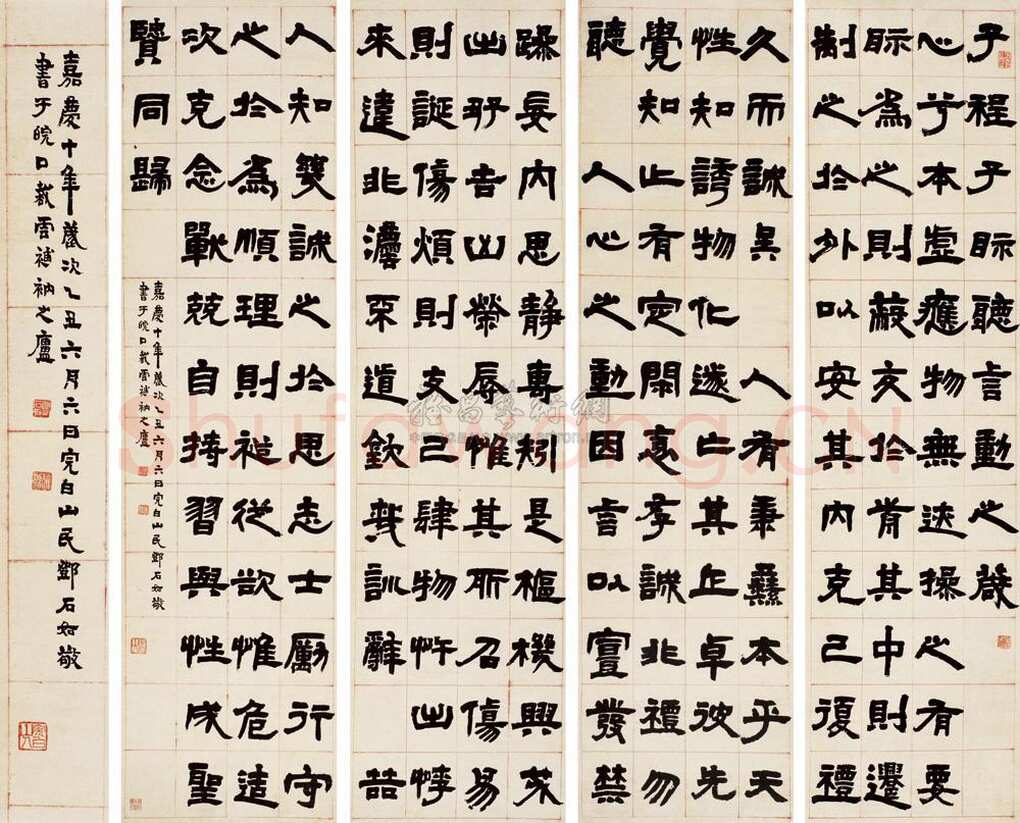 子程子眎聽言動之箴
心兮本虛應物無迹操之有要
眎為之則蔽交於前其中則遷
制之於外以安其內克己復禮
久而誠矣 人有秉彝本乎天
性知誘物化遂亡其正卓彼先
覺知止有定閑衺存誠非禮勿
聽 人心之動因言以宣發禁
躁妄內思靜專矧是樞機興戎
出好吉凶榮辱惟其所召傷易
則誕傷煩則支己肆物忤出悖
來違非灋不道欽哉訓辭 喆
人知幾誠之於思志士勵行守
之於為順理則裕從欲惟危造
次克念戰兢自持習與性成聖
賢同歸
嘉慶十年歲次乙丑六月六日完白山民鄧石如敬
書于皖口裁雲補衲之廬
嘉慶十年歲次乙丑六月六日完白山民鄧石如敬
書于皖口裁雲補衲之廬
Shufawang.CN
雅昌藝術網